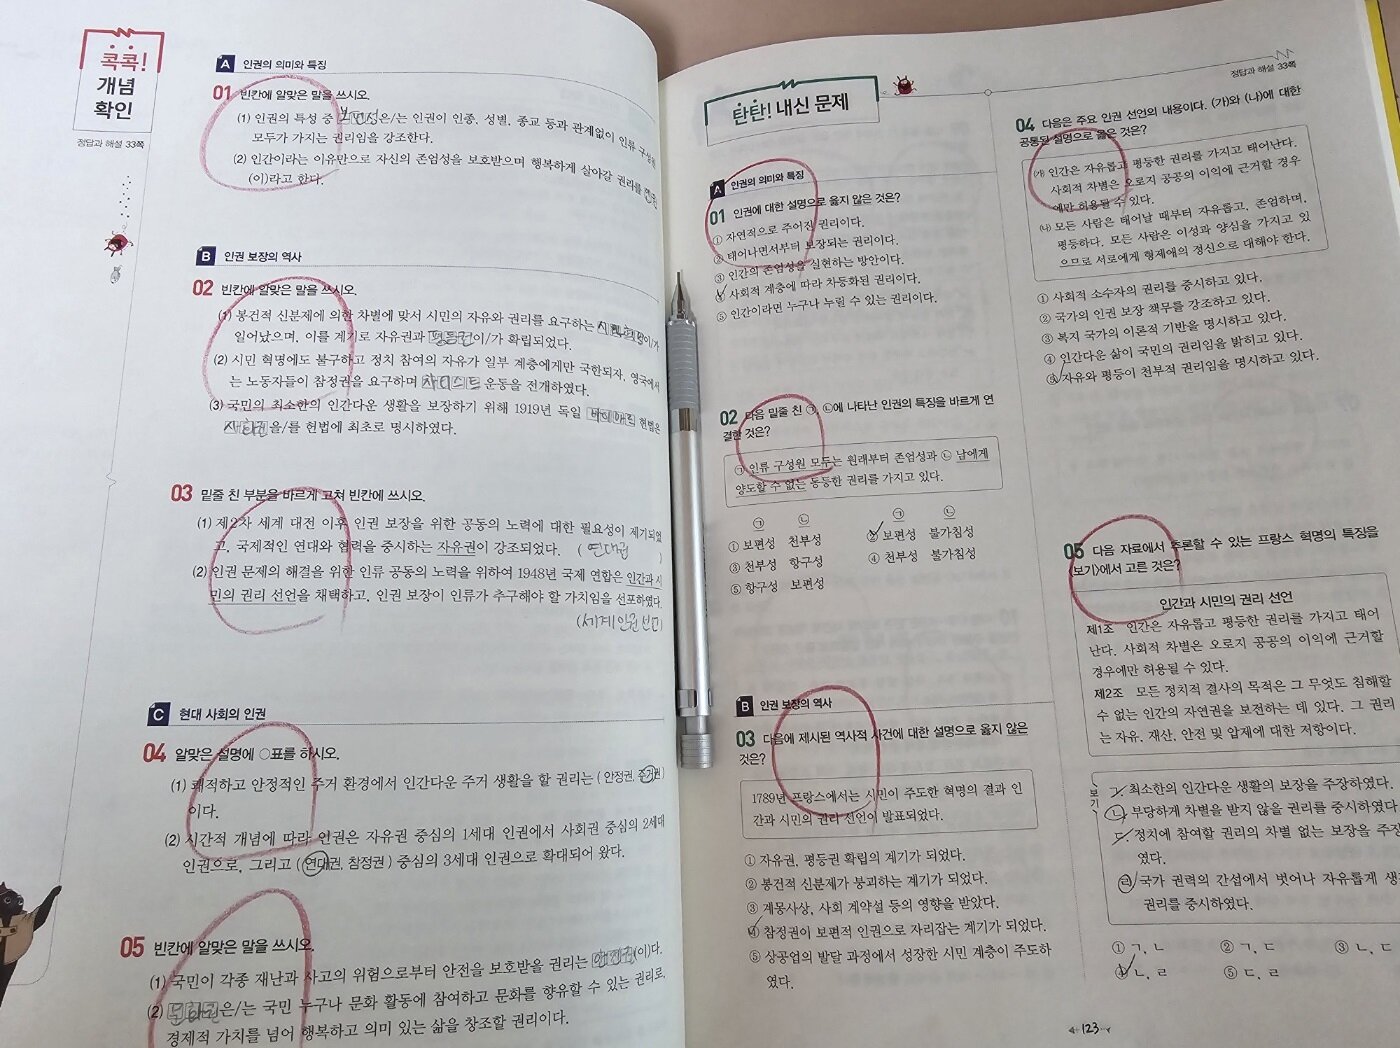 콕콕!
개념
확인
정답과 해설 33쪽
A 인권의 의미와 특징
01 빈칸에 알맞은 말을 쓰시오.
(1) 인권의 특성 중 보편성은/는 인권이 인종, 성별, 종교 등과 관계없이 인류 구성원
모두가 가지는 권리임을 강조한다.
(2) 인간이라는 이유만으로 자신의 존엄성을 보호받으며 행복하게 살아갈 권리를 인권
(이)라고 한다.
B 인권 보장의 역사
02 빈칸에 알맞은 말을 쓰시오.
(1) 봉건적 신분제에 의한 차별에 맞서 시민의 자유와 권리를 요구하는 시민혁명이/가
일어났으며, 이를 계기로 자유권과 평등권이/가 확립되었다.
(2) 시민 혁명에도 불구하고 정치 참여의 자유가 일부 계층에게만 국한되자, 영국에서
는 노동자들이 참정권을 요구하며 차티스트 운동을 전개하였다.
(3) 국민의 최소한의 인간다운 생활을 보장하기 위해 1919년 독일 바이마르 헌법은
사회권을/를 헌법에 최초로 명시하였다.
03 밑줄 친 부분을 바르게 고쳐 빈칸에 쓰시오.
(1) 제2차 세계 대전 이후 인권 보장을 위한 공동의 노력에 대한 필요성이 제기되었
고, 국제적인 연대와 협력을 중시하는 자유권이 강조되었다. ( 연대권 )
(2) 인권 문제의 해결을 위한 인류 공동의 노력을 위하여 1948년 국제 연합은 인간과 시
민의 권리 선언을 채택하고, 인권 보장이 인류가 추구해야 할 가치임을 선포하였다.
(세계 인권 선언)
C 현대 사회의 인권
04 알맞은 설명에 ○표를 하시오.
(1) 쾌적하고 안정적인 주거 환경에서 인간다운 주거 생활을 할 권리는 ( 안정권, 주거권 )
이다.
(2) 시간적 개념에 따라 인권은 자유권 중심의 1세대 인권에서 사회권 중심의 2세대
인권으로, 그리고 ( 연대권, 참정권 ) 중심의 3세대 인권으로 확대되어 왔다.
05 빈칸에 알맞은 말을 쓰시오.
(1) 국민이 각종 재난과 사고의 위험으로부터 안전을 보호받을 권리는 안전권(이)다.
(2) 문화권은/는 국민 누구나 문화 활동에 참여하고 문화를 향유할 수 있는 권리로,
경제적 가치를 넘어 행복하고 의미 있는 삶을 창조할 권리이다.
탄탄! 내신 문제
정답과 해설 33쪽
A 인권의 의미와 특징
01 인권에 대한 설명으로 옳지 않은 것은?
① 자연적으로 주어진 권리이다.
② 태어나면서부터 보장되는 권리이다.
③ 인간의 존엄성을 실현하는 방안이다.
④ 사회적 계층에 따라 차등화된 권리이다.
⑤ 인간이라면 누구나 누릴 수 있는 권리이다.
02 다음 밑줄 친 ㉠, ㉡에 나타난 인권의 특징을 바르게 연
결한 것은?
㉠ 인류 구성원 모두는 원래부터 존엄성과 ㉡ 남에게
양도할 수 없는 동등한 권리를 가지고 있다.
㉠ ㉡ ㉠ ㉡
① 보편성 천부성 ② 보편성 불가침성
③ 천부성 항구성 ④ 천부성 불가침성
⑤ 항구성 보편성
B 인권 보장의 역사
03 다음에 제시된 역사적 사건에 대한 설명으로 옳지 않은
것은?
1789년 프랑스에서는 시민이 주도한 혁명의 결과 인
간과 시민의 권리 선언이 발표되었다.
① 자유권, 평등권 확립의 계기가 되었다.
② 봉건적 신분제가 붕괴하는 계기가 되었다.
③ 계몽사상, 사회 계약설 등의 영향을 받았다.
④ 참정권이 보편적 인권으로 자리잡는 계기가 되었다.
⑤ 상공업의 발달 과정에서 성장한 시민 계층이 주도하
였다.
04 다음은 주요 인권 선언의 내용이다. (가)와 (나)에 대한
공통된 설명으로 옳은 것은?
(가) 인간은 자유롭고 평등한 권리를 가지고 태어난다.
사회적 차별은 오로지 공공의 이익에 근거할 경우
에만 허용될 수 있다.
(나) 모든 사람은 태어날 때부터 자유롭고, 존엄하며,
평등하다. 모든 사람은 이성과 양심을 가지고 있
으므로 서로에게 형제애의 정신으로 대해야 한다.
① 사회적 소수자의 권리를 중시하고 있다.
② 국가의 인권 보장 책무를 강조하고 있다.
③ 복지 국가의 이론적 기반을 명시하고 있다.
④ 인간다운 삶이 국민의 권리임을 밝히고 있다.
⑤ 자유와 평등이 천부적 권리임을 명시하고 있다.
05 다음 자료에서 추론할 수 있는 프랑스 혁명의 특징을
<보기>에서 고른 것은?
인간과 시민의 권리 선언
제1조 인간은 자유롭고 평등한 권리를 가지고 태어
난다. 사회적 차별은 오로지 공공의 이익에 근거할
경우에만 허용될 수 있다.
제2조 모든 정치적 결사의 목적은 그 무엇도 침해할
수 없는 인간의 자연권을 보전하는 데 있다. 그 권리
는 자유, 재산, 안전 및 압제에 대한 저항이다.
보기
ㄱ. 최소한의 인간다운 생활의 보장을 주장하였다.
ㄴ. 부당하게 차별을 받지 않을 권리를 중시하였다.
ㄷ. 정치에 참여할 권리의 차별 없는 보장을 주장
였다.
ㄹ. 국가 권력의 간섭에서 벗어나 자유롭게 생
권리를 중시하였다.
① ㄱ, ㄴ ② ㄱ, ㄷ ③ ㄴ, ㄷ
④ ㄴ, ㄹ ⑤ ㄷ, ㄹ
123